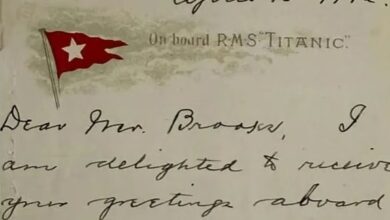 On board R·M·S "TITANIC".
Dear Mr. Brooks, I
am delighted to receive
your greetings aboard